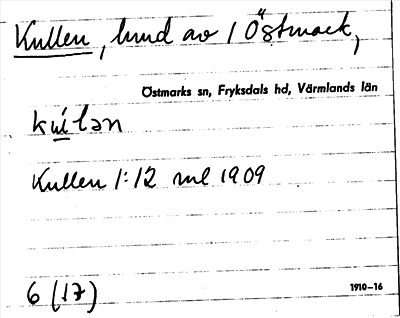 Kullen, hmd av 1 Östmark,
Östmarks sn, Fryksdals hd, Värmlands län
Kullen 1:12 rml 1909
6 (17)
1910–16